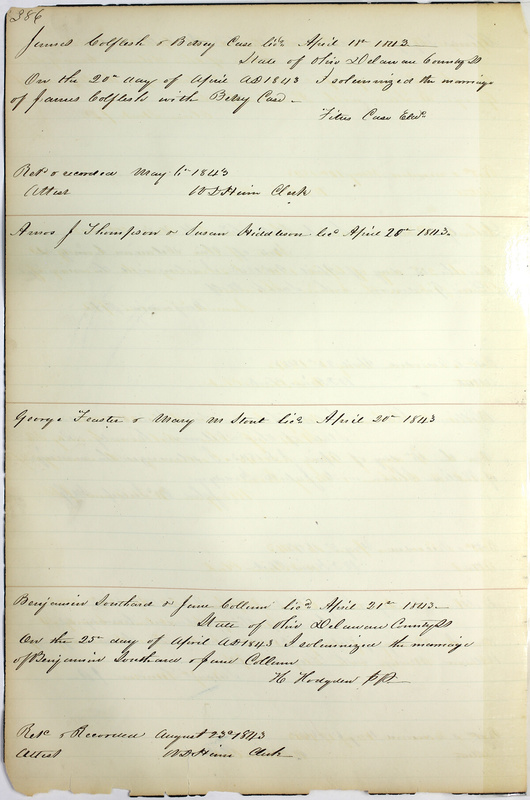 386
James Colflesh & Betsey Case Licd April 18th 1843
State of Ohio Delaware County SS
On the 20th day of April AD 1843 I solemnized the marriage
of James Colflesh with Betsy Case
Titus Case
Retd & recorded May 1st 1843
Attest W D Heim Clerk
Amos J Thompson & Susan Licd April 20th 1843.
George Feaster & Mary M Stout Licd April 20th 1843
Benjamin Southard & Jane Collum Licd April 21st 1843
State of Ohio Delaware County SS
On the 25th day of April AD 1843 I solemnized the marriage
of Benjamin Southard & Jane Collum
H Hodgden JP
Retd & Recorded August 23d 1843
Attest W D Heim Clerk